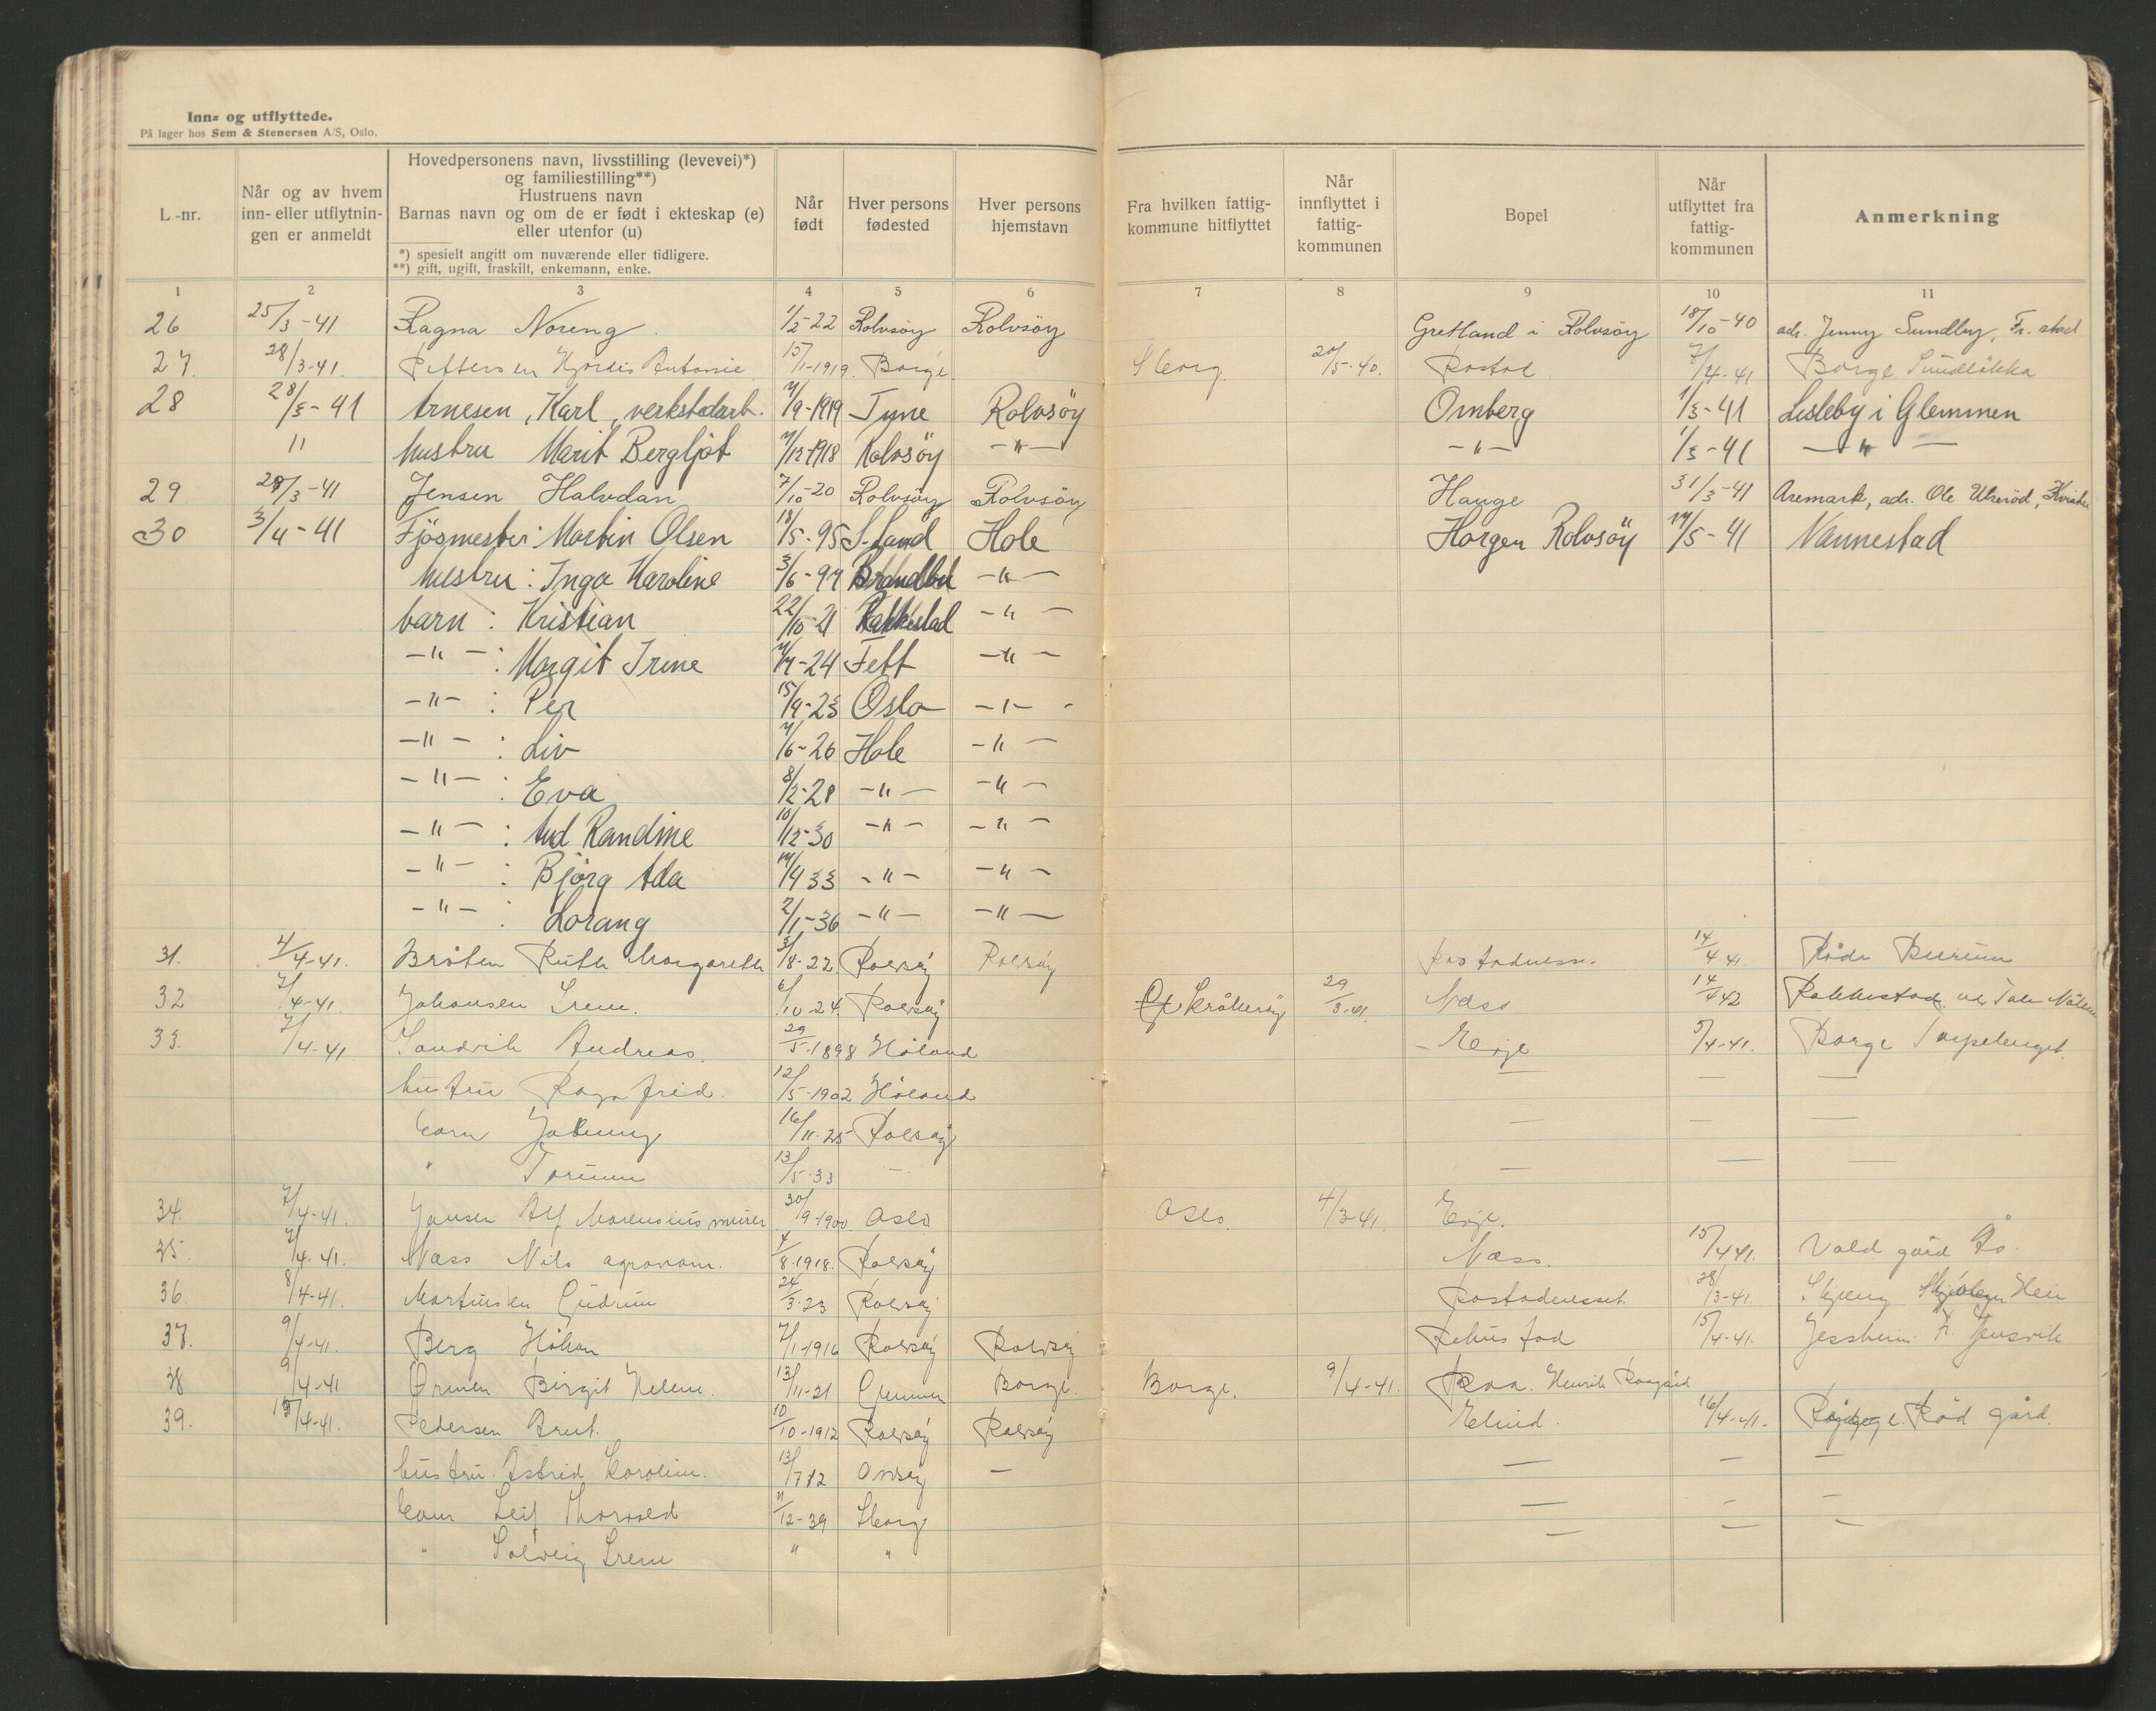 Inn- og utflyttede.
På lager hos Sem & Stenersen A/S, Oslo.
L.-nr.
Når og av hvem inn- eller utflytnin-gen er anmeldt
Hovedpersonens navn, livsstilling (levevei)*) og familiestilling**)
Hustruens navn
Barnas navn og om de er født i ekteskap (e) eller utenfor (u)
*) spesielt angitt om nuværende eller tidligere.
**) gift, ugift, fraskilt, enkemann, enke.
Når født
Hver persons fødested
Hver persons hjemstavn
Fra hvilken fattig-kommune hitflyttet
Når innflyttet i fattig-kommunen
Bopel
Når utflyttet fra fattig-kommunen
Anmerkning
1 2 3 4 5 6 7 8 9 10 11
26 25/3-41 Ragna Noreng. 1/2-22 Rolvsöy Rolvsöy Gretland i Rolvsöy 18/10-40 adr. Jenny Sundby, Fr.stad
27. 28/3-41. Pettersen Hjördis Antonie 15/1-1919. Borge. Sborg. 20/5-40. Rostad 7/4-41 Borge Sundlökka
28 28/3-41 Arnesen, Karl, verkstedarb. 4/9-1919 Tune Rolvsöy Omberg 1/3-41 Lisleby i Glemmen
" hustru Marit Bergljot 7/12-1918 Rolvsöy -"- -"- 1/3-41 -"-
29 29/3-41 Jensen Halvdan 7/10-20 Rolvsöy Rolvsöy Hauge 31/3-41 Aremark, adr. Ole Ulseröd,
30 3/4-41 Fjösmester: Martin Olsen 18/5-95 S. Land Hole Horgen Rolvsöy 14/5-41 Nannestad
hustru: Inga Karoline 3/6-97 Brandbu -"-
barn: Kristian 22/10-21 Rakkestad -"-
-"-: Margit Irene 24 Fett -"-
-"-: Per 15/9-23 Oslo -"-
-"-: Liv 6-26 Hole -"-
-"-: Eva 8/2-28 -"- -"-
-"-: Aud Randine 10/12-30 -"- -"-
-"-: Björg Ada 14/4 33 -"- -"-
-"-: Lorang 2/1-36 -"- -"-
31. 4/4-41. Bråten Ruth Margareth 3/8-22 Rolvsöy Rolvsöy Rostadnesse. 14/4 41 Råde
32 7/4-41. Johansen Irene. 6/10-24. Rolvsöy Kråkeröy 29/3-41. Næss 14/4 42 Rakkestad
33. 7/4-41. Sandvik Andreas. 29/5-1898 Höland Evje 5/4-41. Borge Torpelenget.
hustru Ragnfrid. 12/5-1902 Höland — — —
barn 16/11-25 Rolvsöy — — —
" Torunn 13/5-33 — — — —
34. 7/4-41. Jansen Alf Marensius murer 30/9-1900. Oslo Oslo. 4/3-41. Evje.
35. 7/4-41. Næss Nils agronom. 4/8-1918. Rolvsöy Næss. 15/4 41. Vold gård Ås.
36 8/4-41. Martinsen Gudrun 24/3-23 Rolvsöy Rostadnesset. 28/3-41.
37. 9/4-41. Berg Håkon 7/1-1916 Rolvsöy Rolvsöy Rekustad 15/4-41. Jessheim
38 9/4-41 Ørmen Birgit Helene. 13/11-21 Glemmen Borge. Borge. 9/4-41. Roa. Henrik
39. 15/4-41. Pedersen Arnt. 10/10-1912 Rolvsöy Rolvsöy 16/4-41. Rygge. Röd gård.
hustru Astrid Karoline. 13/7 12 Onsöy — — — —
barn Leif Thorvald 11/12-39 Sborg — — —
" Solveig Irene " " — — —